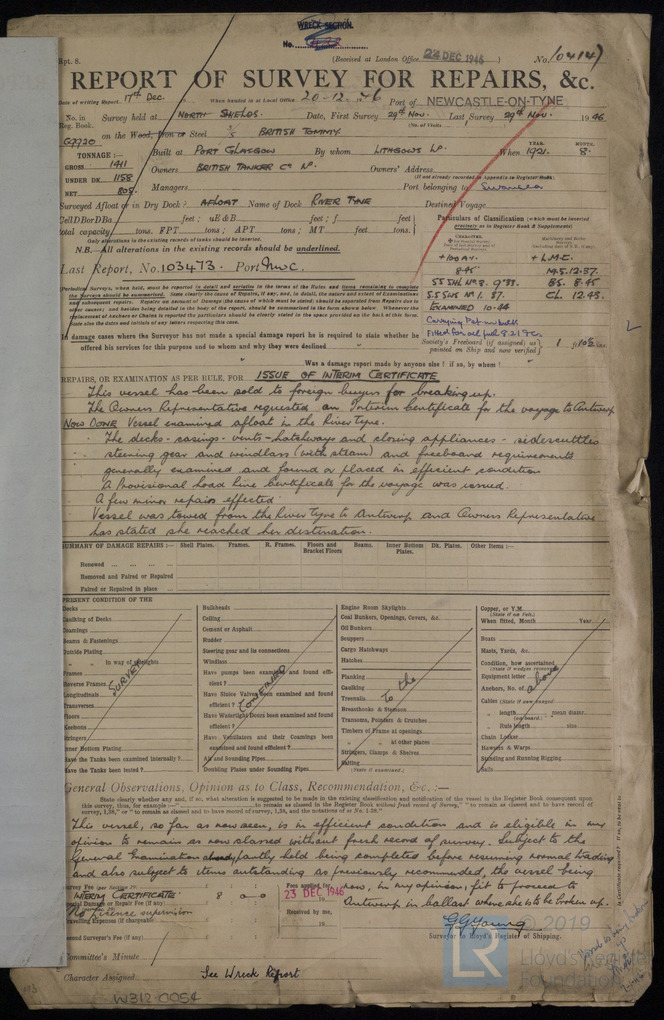 WRECK SECTION.
No.
Rpt. 8.
(Received at London Office 24 DEC 1946 )
No. 10414
REPORT OF SURVEY FOR REPAIRS, &c.
Date of writing Report 17th Dec. When handed in at Local Office 20-12-46 Port of NEWCASTLE-ON-TYNE
No. in Reg. Book. Survey held at NORTH SHIELDS Date, First Survey 29th Nov. Last Survey 29th Nov. 1946
(No. of Visits )
on the Wood, Iron or Steel S/S BRITISH TOMMY.
TONNAGE :—
GROSS 1411
UNDER DK. 1158
NET 808
Built at PORT GLASGOW By whom LITHGOWS Ld. When 1921. 8.
YEAR. MONTH.
Owners BRITISH TANKER Co Ld. Owners' Address
(If not already recorded in Appendix to Register Book)
Managers Port belonging to Swansea
Surveyed Afloat or in Dry Dock? AFLOAT Name of Dock RIVER TYNE Destined Voyage
CellDBorDBa feet ; uE&B feet ; f feet
total capacity tons. FPT tons ; APT tons ; MT feet tons.
Only alterations in the existing records of tanks should be inserted.
N.B. All alterations in the existing records should be underlined.
Last Report, No. 103473. Port Nwc.
Particulars of Classification (which must be inserted precisely as in Register Book & Supplements)
+100 A1. +L.M.C.
8.45 M.S. 12.37.
SS SHL No 2. 9.33. BS. 8.45
S.S SWS No 1. 37. CL. 12.43.
EXAMINED 10.44
Carrying Pet in bulk
Society's Freeboard (if assigned) as painted on Ship and now verified
In damage cases where the Surveyor has not made a special damage report he is required to state whether he
offered his services for this purpose and to whom and why they were declined
Was a damage report made by anyone else? if so, by whom?
REPAIRS, OR EXAMINATION AS PER RULE, FOR ISSUE OF INTERIM CERTIFICATE
This vessel has been sold to foreign buyers for breaking up.
The Owners Representative requested an Interim Certificate for the voyage to Antwerp
NOW DONE Vessel examined afloat in the River Tyne.
The decks - casings - vents - hatchways and closing appliances - sidescuttles
steering gear and windlass (with steam) and freeboard requirements
generally examined and found or placed in efficient condition
A Provisional Load Line Certificate for the voyage was issued.
A few minor repairs effected.
Vessel was towed from the River Tyne to Antwerp and Owners Representative
has stated she reached her destination.
SUMMARY OF DAMAGE REPAIRS :— Shell Plates. Frames. R. Frames. Floors and Bracket Floors Beams. Inner Bottom Plates. Dk. Plates. Other Items :—
Renewed ... ... ... ...
Removed and Faired or Repaired
Faired or Repaired in place ...
PRESENT CONDITION OF THE
Decks
Caulking of Decks
Coamings
Beams & Fastenings
Outside Plating
" " in way of sidelights
Frames
Reverse Frames
Longitudinals
Transverses
Floors
Keelsons
Stringers
Inner Bottom Plating
Have the Tanks been examined internally?
Have the Tanks been tested?
Bulkheads
Ceiling
Cement or Asphalt
Rudder
Steering gear and its connections
Windlass
Have pumps been examined and found efficient?
Have Sluice Valves been examined and found efficient?
Have Watertight Doors been examined and found efficient?
Have Ventilators and their Coamings been examined and found efficient?
Air and Sounding Pipes
Doubling Plates under Sounding Pipes
Engine Room Skylights
Coal Bunkers, Openings, Covers, &c.
Oil Bunkers
Scuppers
Cargo Hatchways
Hatches
Planking
Caulking
Treenails
Breasthooks & Stemson
Transoms, Pointers & Crutches
Timbers of Frame at openings
" " at other places
Stringers, Clamps & Shelves
Salting
(State if examined.)
Copper, or Y.M.
(State if on Felt.)
When fitted, Month Year
Boats
Masts, Yards, &c.
Condition, how ascertained
(State if wedges removed)
Equipment letter
Anchors, No. of
Cables (State if now ranged)
" length mean diamr.
(on board.)
" Rule length size
Chain Locker
Hawsers & Warps
Standing and Running Rigging
Sails
SURVEY CONFINED to the above
General Observations, Opinion as to Class, Recommendation, &c. :—
This vessel, so far as now seen, is in efficient condition and is eligible in my
opinion to remain as now classed without fresh record of survey. Subject to the
General Examination partly held being completed before resuming normal trading
and also subject to items outstanding as previously recommended, the vessel being
now, in my opinion, fit to proceed to
Antwerp in ballast where she is to be broken up.
Survey Fee (per Section 29)
INTERIM CERTIFICATE 8 0 0
Fees applied for 23 DEC 1946
Special Damage or Repair Fee (if any)
No Licence supervision
Travelling Expenses (if chargeable)
Received by me,
Second Surveyor's Fee (if any)
G G Young
Surveyor to Lloyd's Register of Shipping.
Committee's Minute
Character Assigned See Wreck Report
W312-0054
© 2019
LR
Lloyd's Register
Foundation